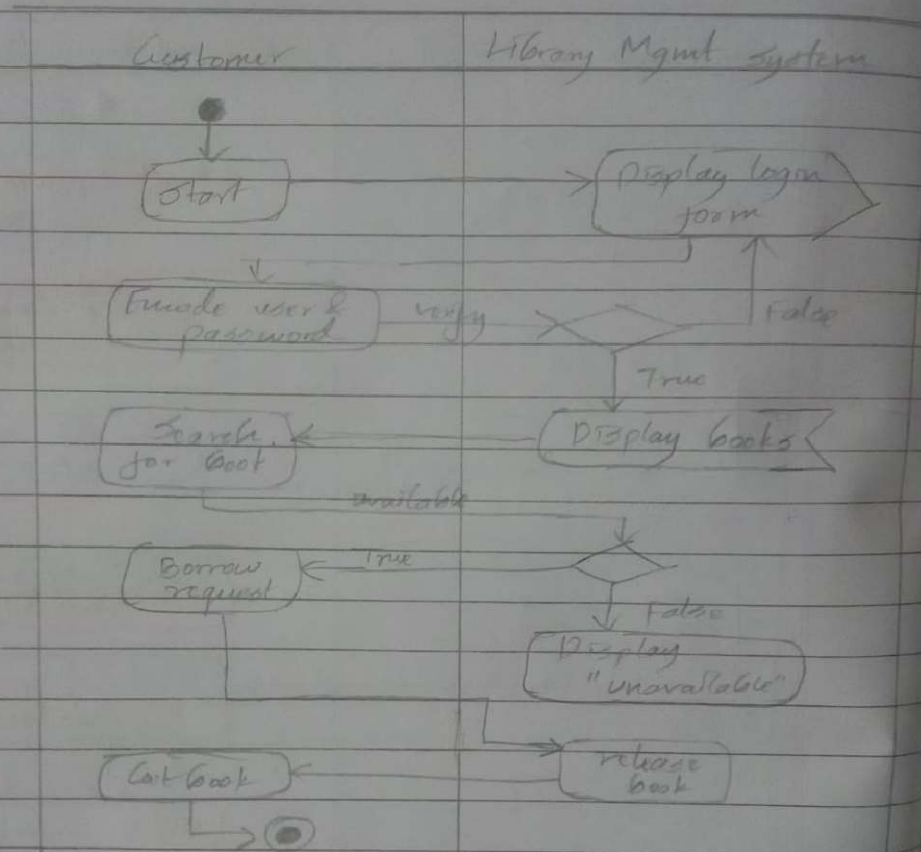 Customer
Library Mgmt System
Start
Display login
form
Encode user &
password
verify
False
True
Search
for book
Display books
available
Borrow
request
True
False
Display
"unavailable"
release
book
book